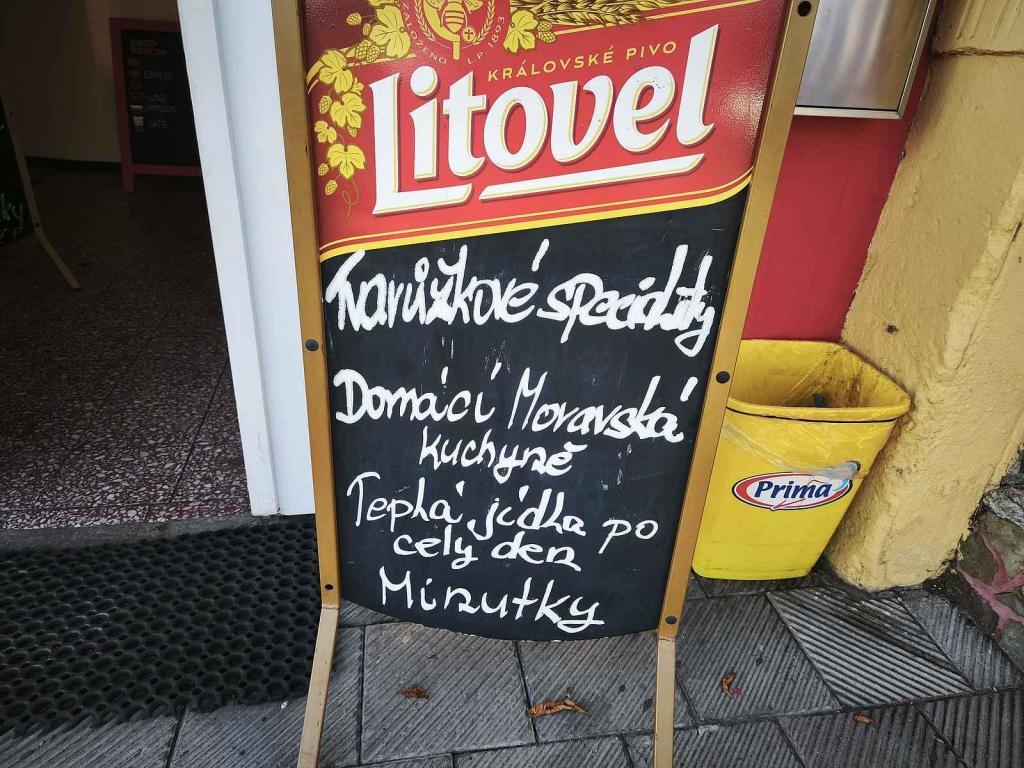 ZALOŽENO L.P. 1893
KRÁLOVSKÉ PIVO
Litovel
Tvarůžkové speciality
Domácí Moravská
Kuchyně
Teplá jídla po
celý den
Minutky
Prima
ESPRESSO
LATTE